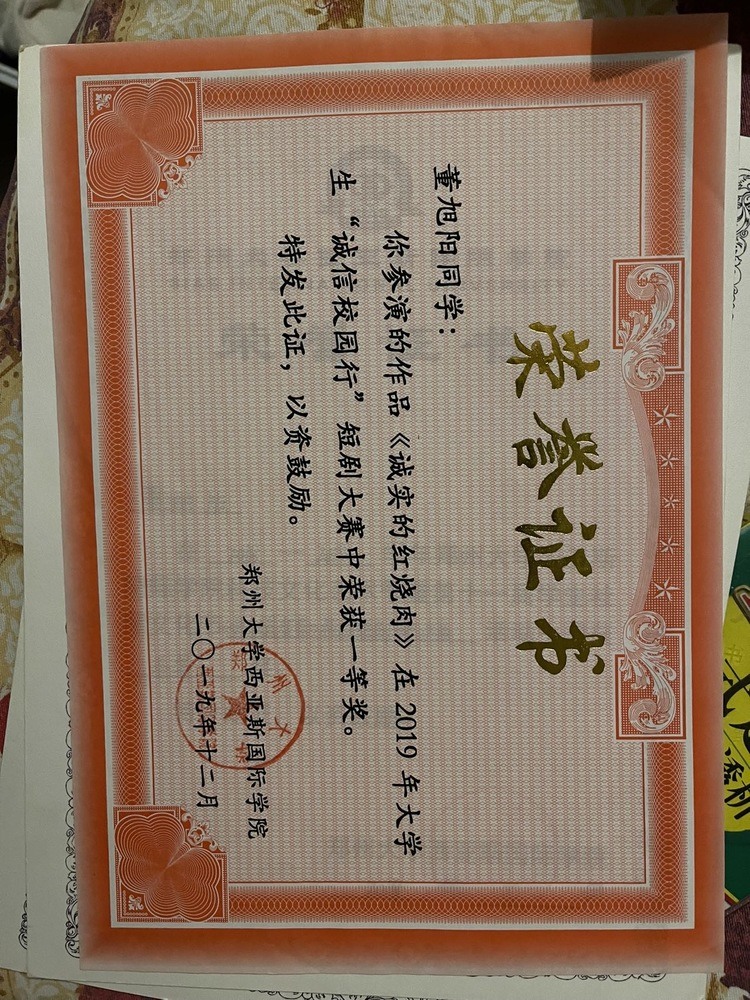 荣誉证书
董旭阳同学：
你参演的作品《诚实的红烧肉》在 2019 年大学
生“诚信校园行”短剧大赛中荣获一等奖。
特发此证，以资鼓励。
郑州大学西亚斯国际学院
二〇一九年十二月